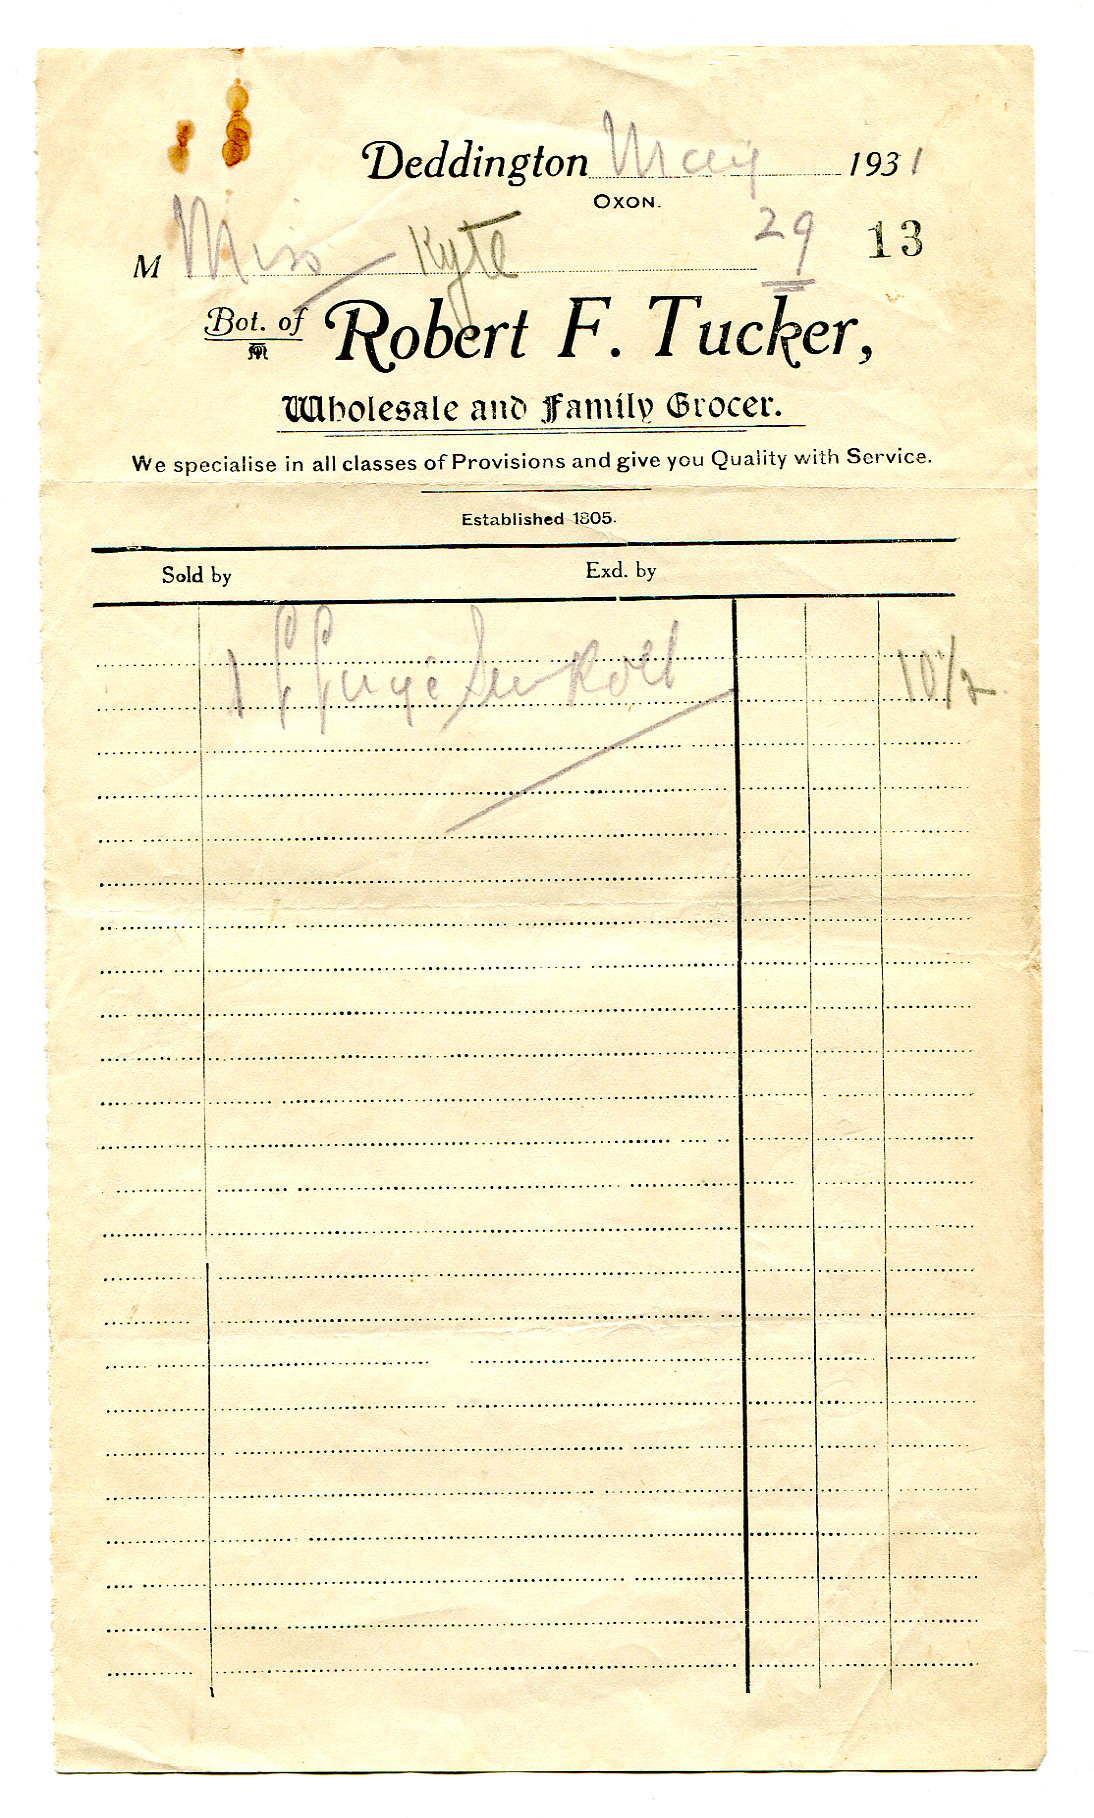 Deddington May 1931
OXON.
29 13
M Miss Kyte
Bot. of Robert F. Tucker,
Wholesale and Family Grocer.
We specialise in all classes of Provisions and give you Quality with Service.
Established 1805.
Sold by Exd. by
1 Roll 10½